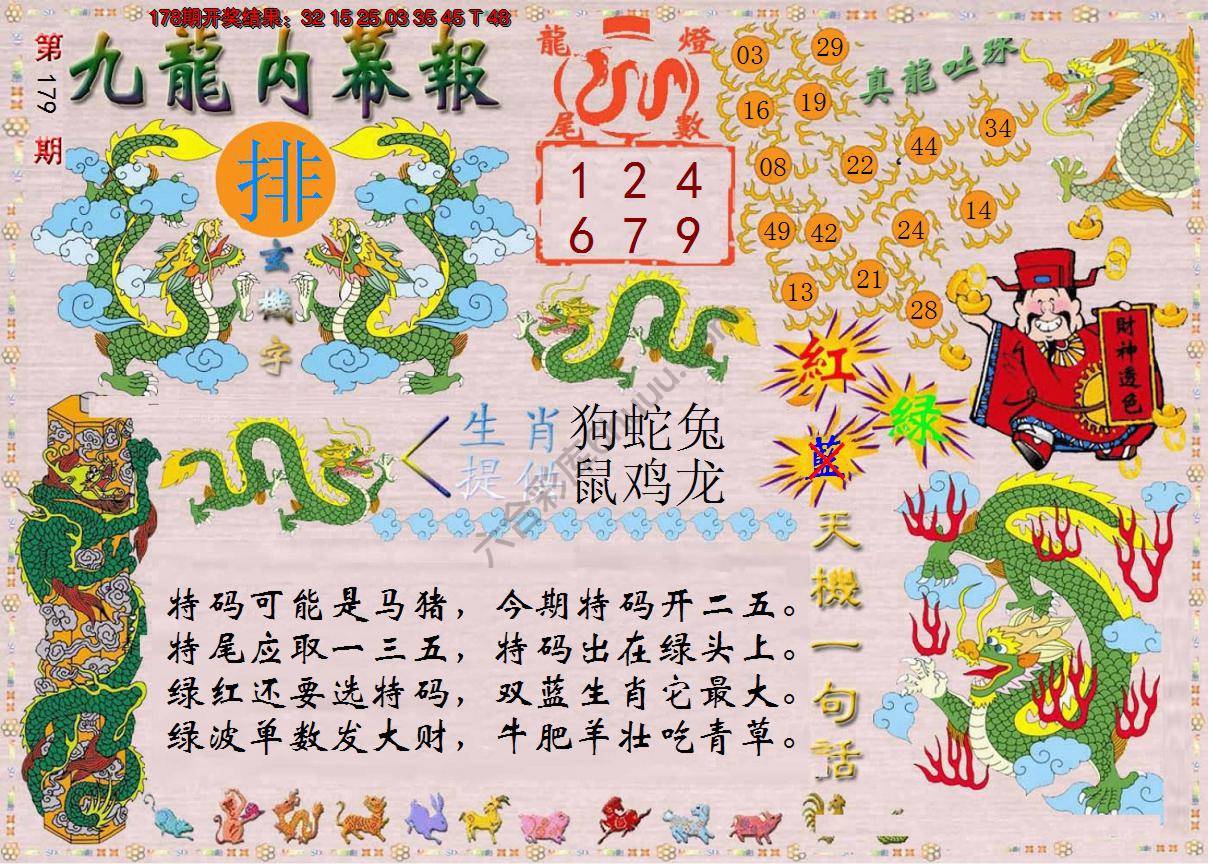 178期开奖结果：32 15 25 03 35 45 T 48
第179期
九龍内幕報
排
玄機字
龍燈
尾數
1 2 4
6 7 9
真龍吐珠
03 29
16 19
44 34
08 22
14
49 42 24
13 21
28
財神透色
紅
綠
藍
生肖 狗蛇兔
提供 鼠鸡龙
天機一句話
特码可能是马猪，今期特码开二五。
特尾应取一三五，特码出在绿头上。
绿红还要选特码，双蓝生肖它最大。
绿波单数发大财，牛肥羊壮吃青草。